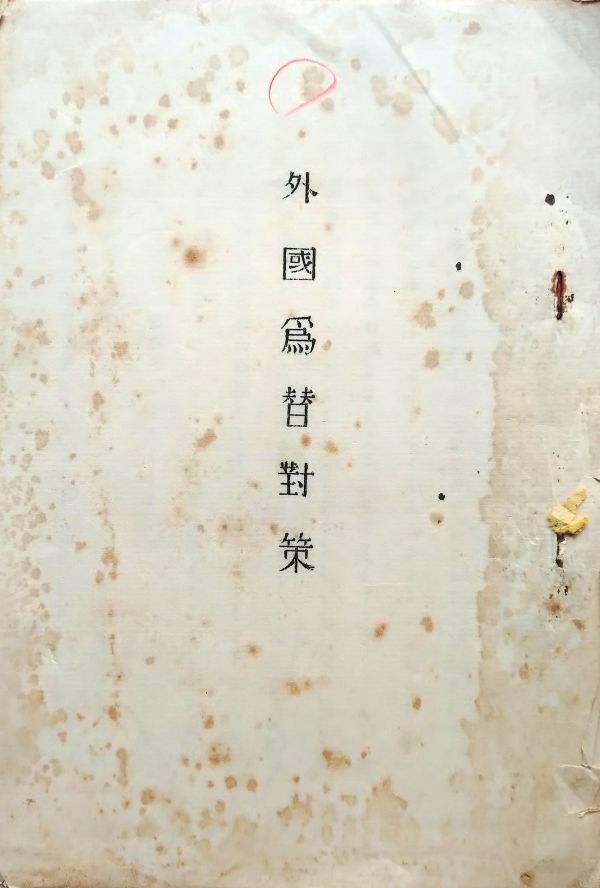 外國爲替對策